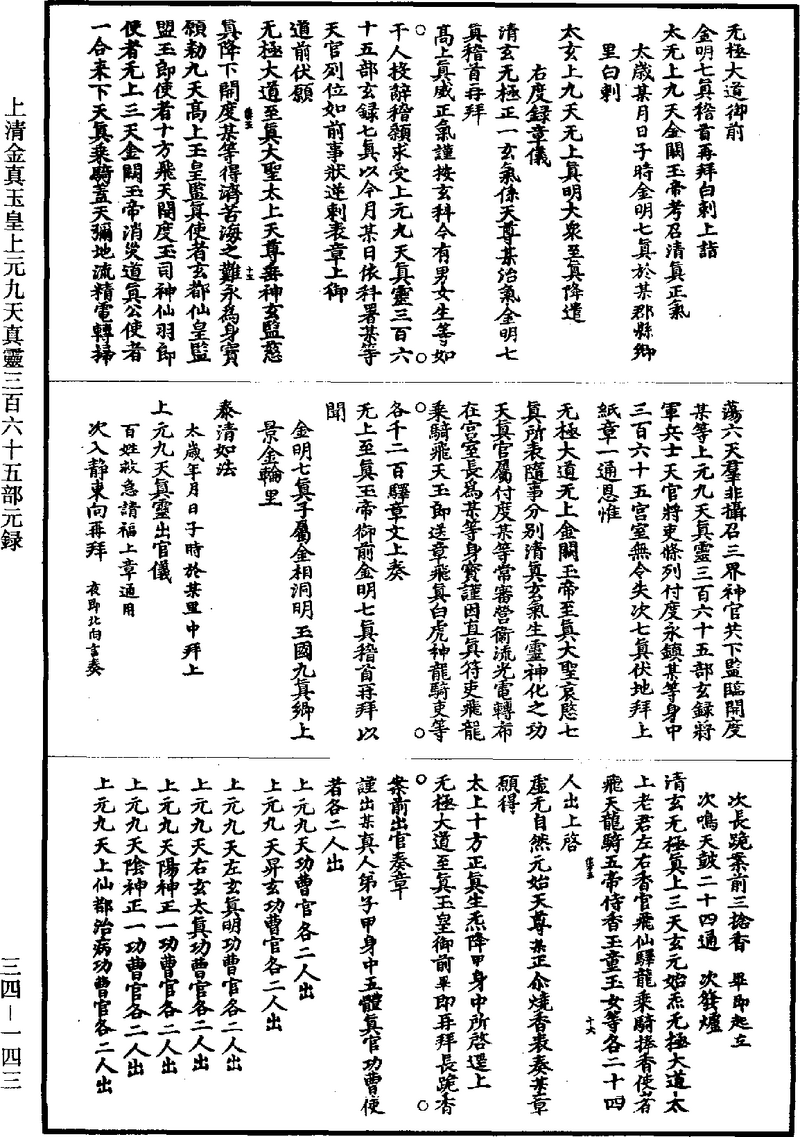 无極大道御前
金明七真稽首再拜白刺上詣
太无上九天金闕玉帝考召清真正氣
太歲某月日子時金明七真於某郡縣鄉
里白刺
太玄上九天无上真明大衆至真降遣
右度録章儀
清玄无極正一玄氣係天尊某治氣金明七
真稽首再拜
髙上真威正氣謹按玄科今有男女生等如
干人投辭稽顙求受上元九天真靈三百六
十五部玄録七真以今月某日依科署某等
天官列位如前事狀逆刺表章上御
道前伏願
无極大道至真大聖太上天尊垂神玄監慈
真降下開度某等得濟苦海之難永為身寶
願勑九天髙上玉皇監真使者玄都仙皇監
盟玉郎使者十方飛天開度玉司神仙羽郎
使者无上三天金闕玉帝消災道真公使者
一合来下天真乗騎蓋天彌地流精電轉掃
蕩六天羣非攝召三界神官共下監臨開度
某等上元九天真靈三百六十五部玄録將
軍兵士天官將吏條列付度永鎮某等身中
三百六十五宫室無令失次七真伏地拜上
紙章一通恩惟
无極大道无上金闕玉帝至真大聖哀愍七
真所表隨事分别清真玄氣生靈神化之功
天真官屬付度某等常審營衛流光電轉布
在宫室長為某等身寶謹因直真符吏飛龍
乗騎飛天玉郎送章飛真白虎神龍騎吏等
各千二百驛章文上奏
无上至真玉帝御前金明七真稽首再拜以
聞
金明七真子屬金相洞明玉國九真鄉上
景金輪里
泰清如法
太歲年月日子時於某里中拜上
上元九天真靈出官儀
百姓救急請福上章通用
次入静東向再拜 夜即北向言奏
次長跪案前三捻香 畢即起立
次鳴天鼓二十四通 次發爐
清玄无極真上三天玄元始炁无極大道太
上老君左右香官飛仙驛龍乗騎捧香使者
飛天龍騎五帝侍香玉童玉女等各二十四
人出上啓
虚无自然元始天尊某正尒燒香表奏某章
願得
太上十方正真生炁降甲身中所啓逕上
无極大道至真玉皇御前畢即再拜長跪香
案前出官奏章
謹出某真人弟子甲身中五體真官功曹使
者各二人出
上元九天功曹官各二人出
上元九天昇玄功曹官各二人出
上元九天左玄真明功曹官各二人出
上元九天右玄太真功曹官各二人出
上元九天陽神正一功曹官各二人出
上元九天陰神正一功曹官各二人出
上元九天上仙都治病功曹官各二人出
上清金真玉皇上元九天真靈三百六十五部元録
三四—一四三